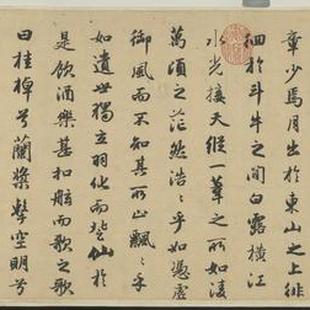 章少焉月出於東山之上徘
徊於斗牛之間白露橫江
水光接天縱一葦之所如凌
萬頃之茫然浩〻乎如憑虛
御風而不知其所止飄〻乎
如遺世獨立羽化而登仙於
是飲酒樂甚扣舷而歌之歌
曰桂棹兮蘭槳擊空明兮